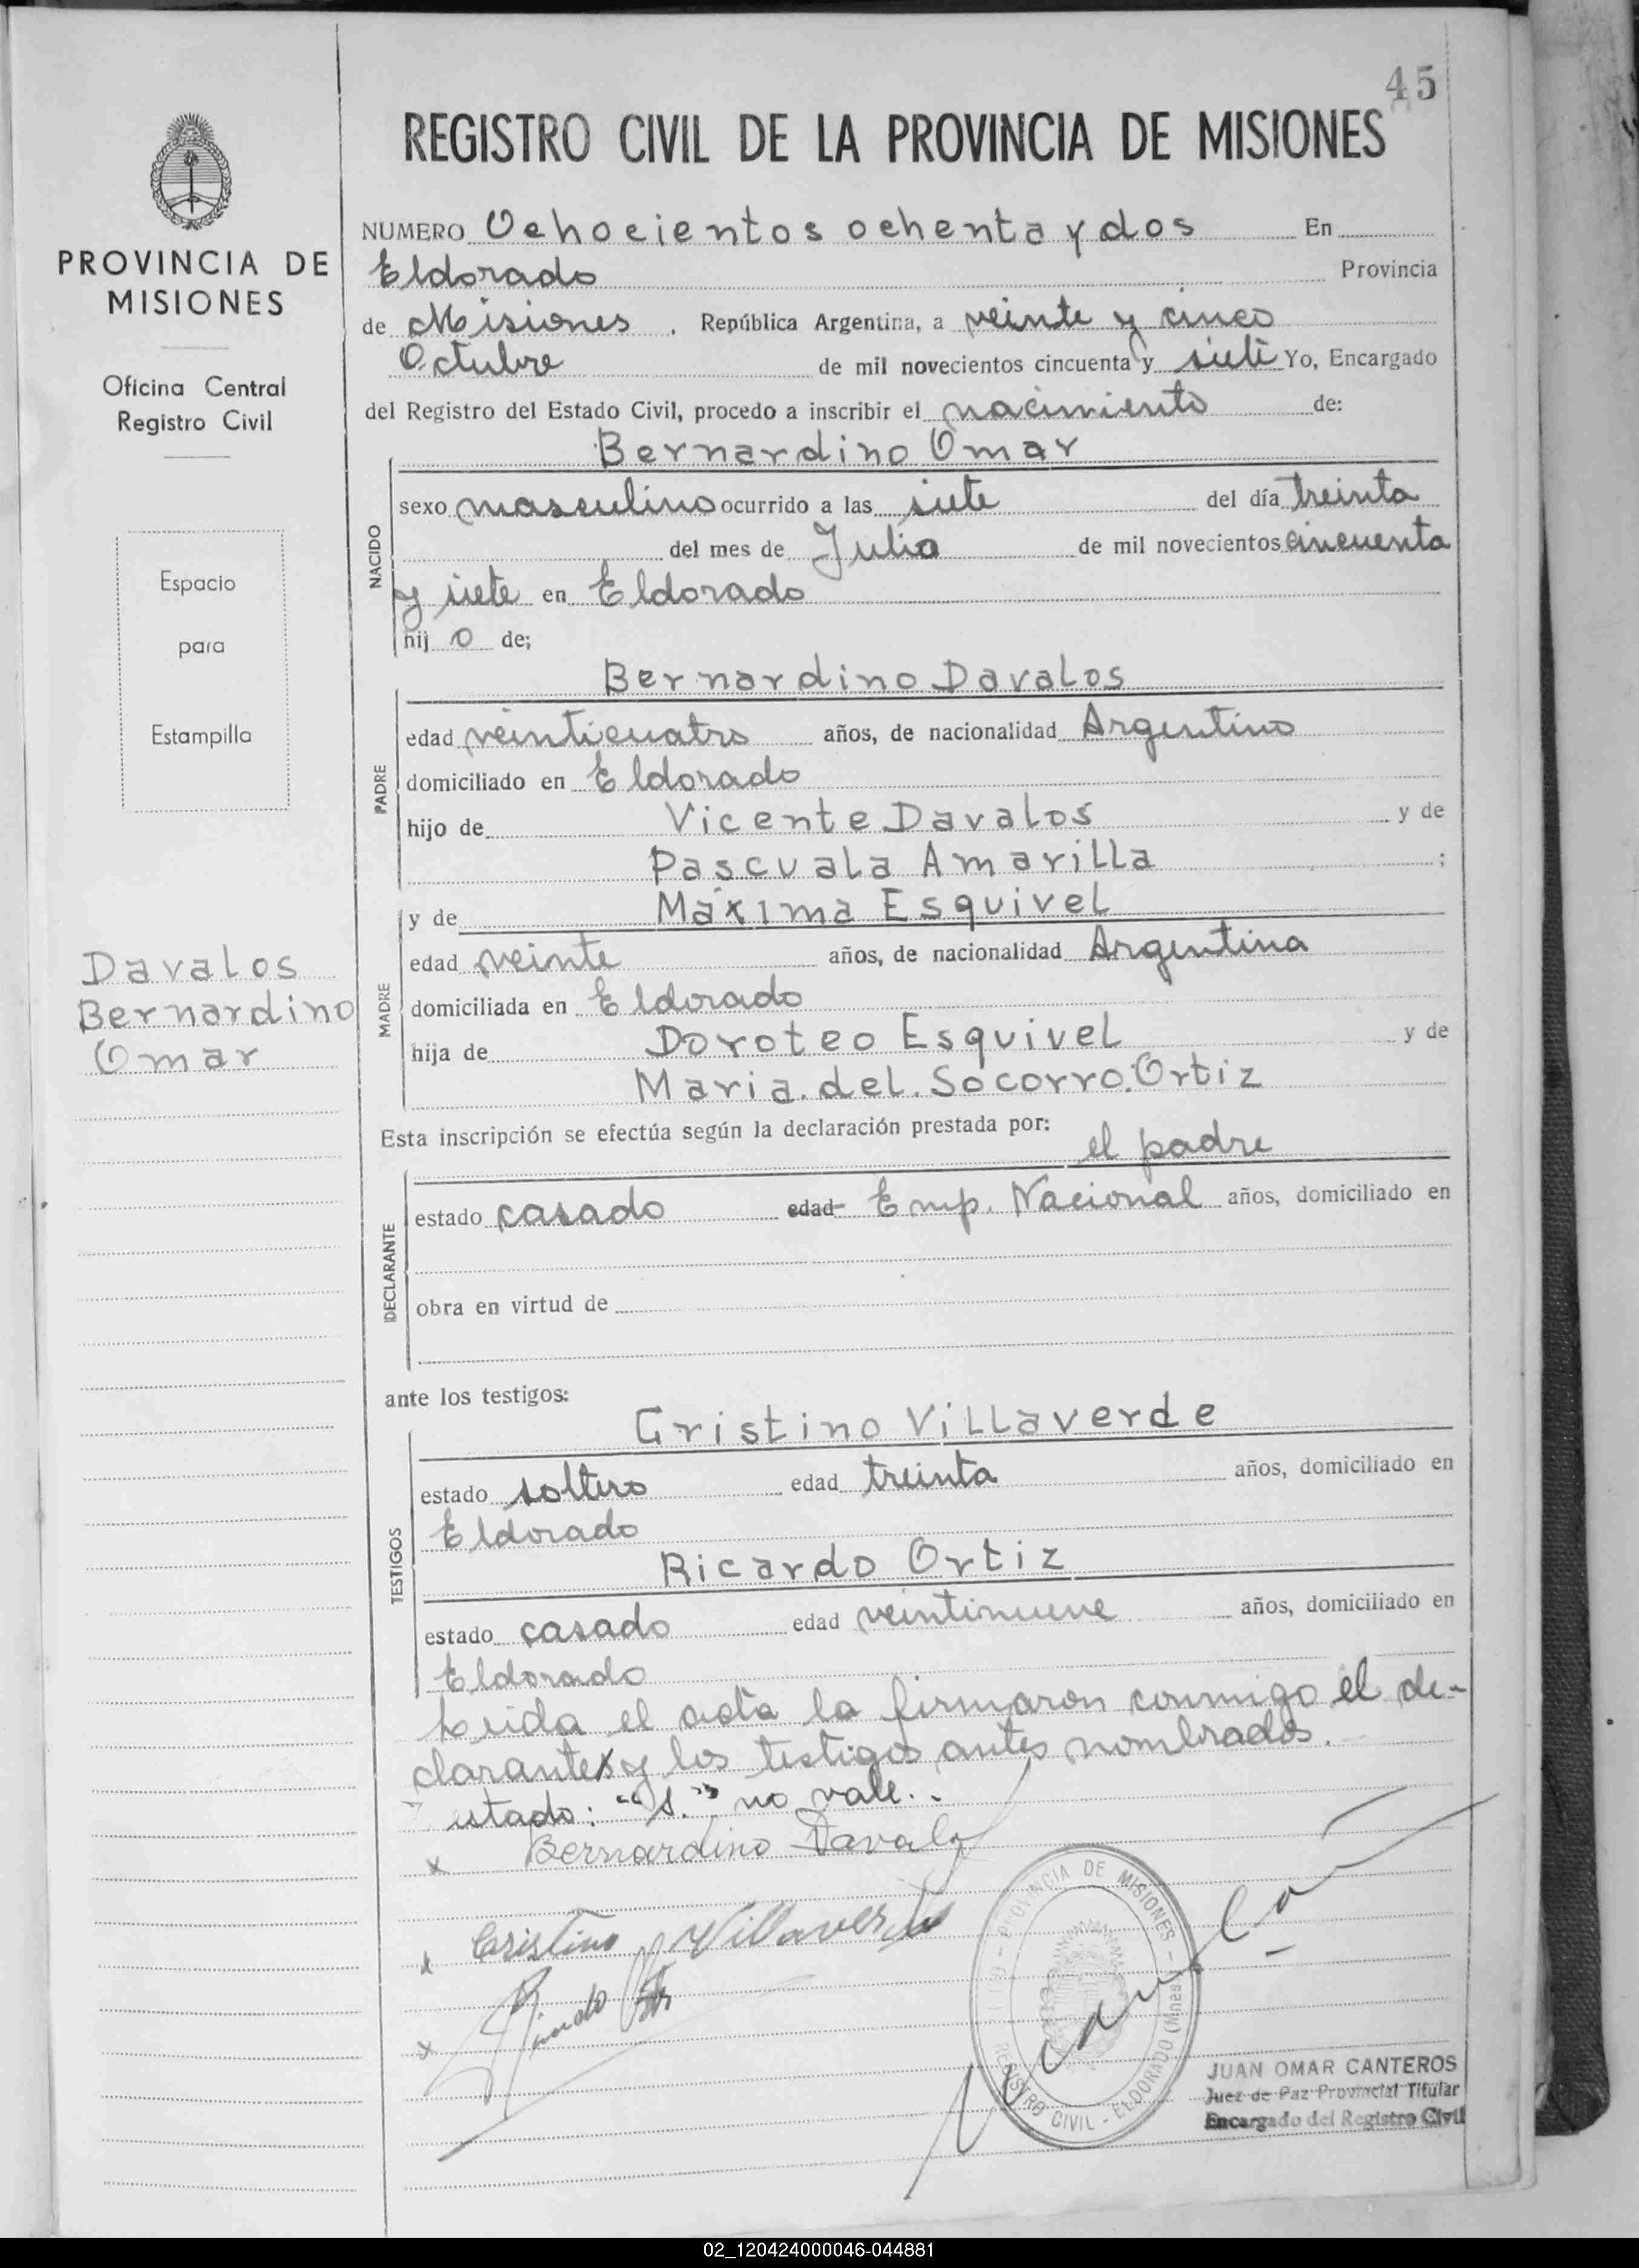 45
REGISTRO CIVIL DE LA PROVINCIA DE MISIONES
PROVINCIA DE
MISIONES
Oficina Central
Registro Civil
Espacio
para
Estampilla
Davalos
Bernardino
Omar
NUMERO Ochocientos ochenta y dos En
Eldorado Provincia
de Misiones , República Argentina, a veinte y cinco
Octubre de mil novecientos cincuenta y siete Yo, Encargado
del Registro del Estado Civil, procedo a inscribir el nacimiento de:
Bernardino Omar
NACIDO
sexo masculino ocurrido a las siete del día treinta
del mes de Julio de mil novecientos cincuenta
y siete en Eldorado
hij o de;
Bernardino Davalos
PADRE
edad veinticuatro años, de nacionalidad Argentino
domiciliado en Eldorado
hijo de Vicente Davalos y de
Pascuala Amarilla ;
y de Máxima Esquivel
MADRE
edad veinte años, de nacionalidad Argentina
domiciliada en Eldorado
hija de Doroteo Esquivel y de
Maria del Socorro Ortiz
Esta inscripción se efectúa según la declaración prestada por:
el padre
DECLARANTE
estado casado edad Emp. Nacional años, domiciliado en
obra en virtud de
ante los testigos:
Cristino Villaverde
TESTIGOS
estado soltero edad treinta años, domiciliado en
Eldorado
Ricardo Ortiz
estado casado edad veintinueve años, domiciliado en
Eldorado
Leida el acta la firmaron conmigo el de-
clarantes y los testigos antes nombrados.
estado: "s." no vale.
x Bernardino Davalos
x Cristino Villaverde
x Ricardo
PROVINCIA DE MISIONES
REGISTRO CIVIL - ELDORADO (Mnes.)
JUAN OMAR CANTEROS
Juez de Paz Provincial Titular
Encargado del Registro Civil
02_120424000046-044881